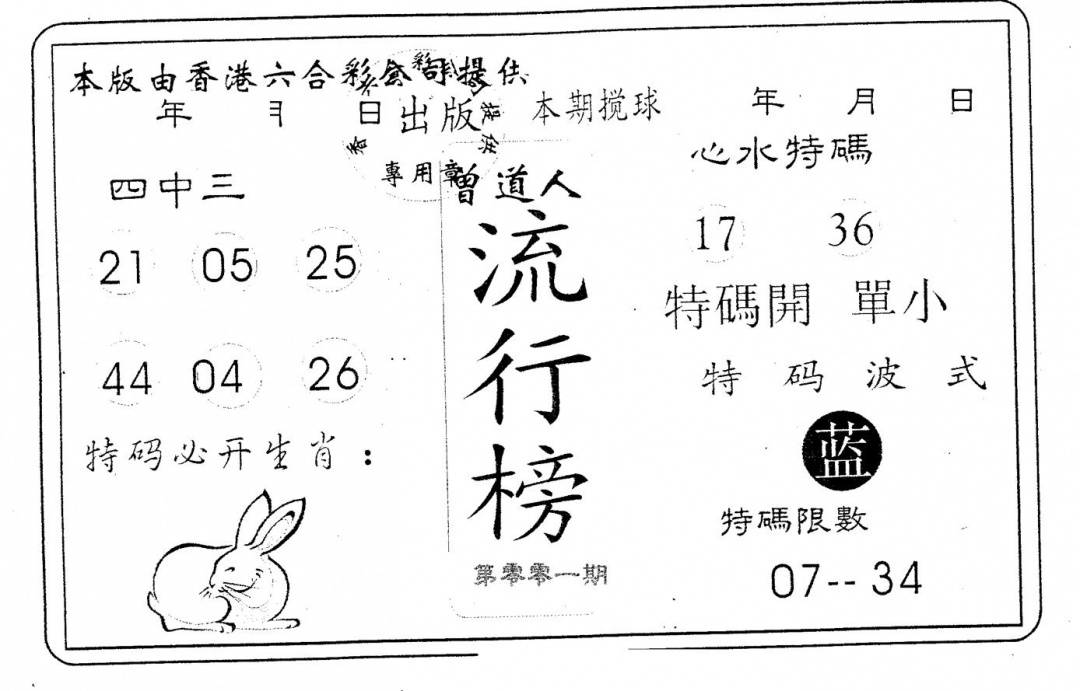 本版由香港六合彩公司提供
年 月 日 出版
本期搅球 年 月 日
專用章
四中三
21 05 25
44 04 26
特码必开生肖：
曾道人
流行榜
第零零一期
心水特碼
17 36
特碼開 單小
特码波式
蓝
特碼限數
07--34